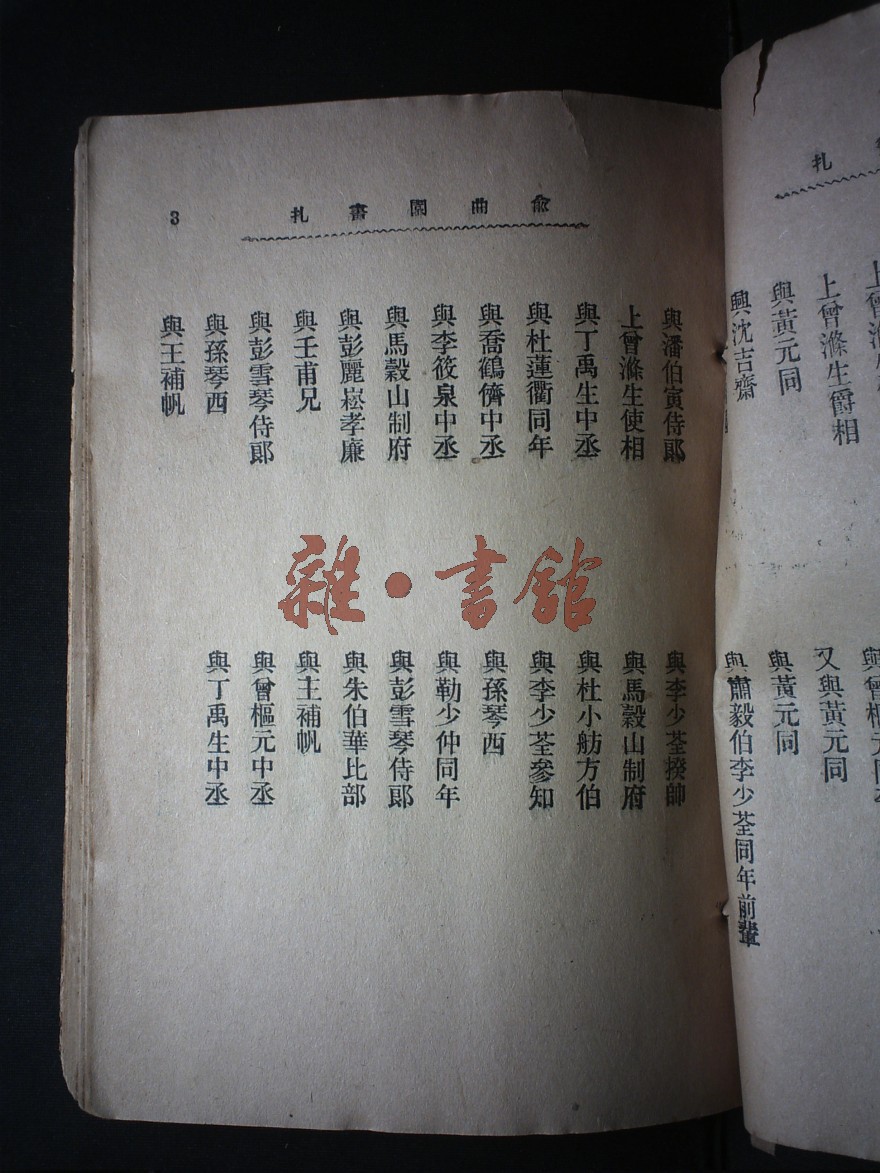 俞曲園書札
3
與潘伯寅侍郎
上曾滌生使相
與丁禹生中丞
與杜蓮衢同年
與喬鶴儕中丞
與李筱泉中丞
與馬穀山制府
與彭麗崧孝廉
與壬甫兄
與彭雪琴侍郎
與孫琴西
與王補帆
與李少荃揆帥
與馬穀山制府
與杜小舫方伯
與李少荃參知
與孫琴西
與勒少仲同年
與彭雪琴侍郎
與朱伯華比部
與主補帆
與曾樞元中丞
與丁禹生中丞
雜·書館
札
上曾滌生爵相
與黃元同
與沈吉齋
又與黃元同
與黃元同
與肅毅伯李少荃同年前輩